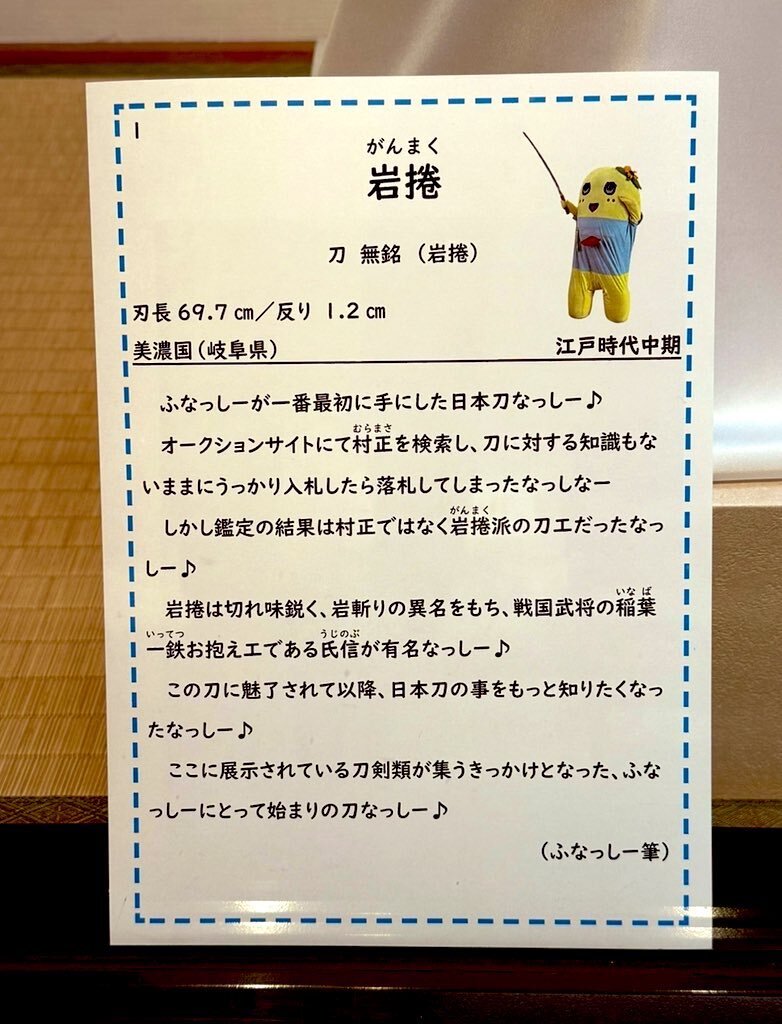 1
がんまく
岩捲
刀 無銘 (岩捲)
刃長 69.7 ㎝/反り 1.2 ㎝
美濃国(岐阜県) 江戸時代中期
ふなっしーが一番最初に手にした日本刀なっしー♪
むらまさ
オークションサイトにて村正を検索し、刀に対する知識もな
いままにうっかり入札したら落札してしまったなっしなー
がんまく
しかし鑑定の結果は村正ではなく岩捲派の刀工だったなっ
しー♪
いなば
岩捲は切れ味鋭く、岩斬りの異名をもち、戦国武将の稲葉
いってつ うじのぶ
一鉄お抱え工である氏信が有名なっしー♪
この刀に魅了されて以降、日本刀の事をもっと知りたくなっ
たなっしー♪
ここに展示されている刀剣類が集うきっかけとなった、ふな
っしーにとって始まりの刀なっしー♪
(ふなっしー筆)